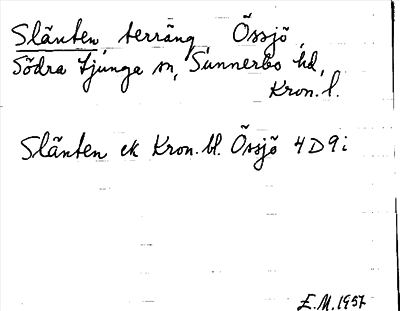 Slänten, terräng, Össjö,
Södra Ljunga sn, Sunnerbo hd,
Kron. l.
Slänten ek Kron. bl. Össjö 4D9i
E.M. 1957